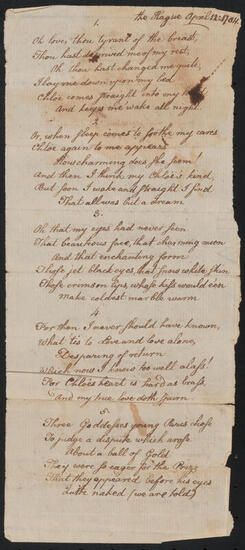 the Hague April 12: 1704
1.
Oh love, thou tyrant of the breast,
Thou hast deprived me of my rest,
Oh thou hast changed me quite,
I lay me down upon my bed
Chloe comes straight into my
And keeps me wake all night.
2
Or, when sleep comes to soothe my cares
Chloe again to me appears
How charming does she seem!
And then I think my Chloe's kind,
But soon I wake and straight I find
That all was but a dream
3.
Oh that my eyes had never seen
That beauteous face, that charming mien
And that enchanting form
Those jet black eyes, that snow white skin
Those crimson lips, whose kiss would e'en
make coldest marble warm
4
For then I never should have known,
What 'tis to Pine and love alone,
Despairing of return
Which now I know too well alass!
For Chloe's heart is hard as brass
And my true love doth spurn
5
Three Goddesses young Paris chose
To judge a dispute which arose
About a ball of Gold
They were so eager for the Prize
That they appeared before his eyes
Quite naked (we are told)